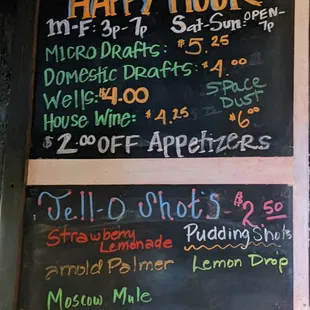 HAPPY HOUR
M-F: 3p-7p Sat-Sun: OPEN-7p
MICRO Drafts: $5.25
Domestic Drafts: $4.00
Wells: $4.00
Space Dust $6.00
House Wine: $4.25
$2.00 OFF Appetizers
Jell-O Shots $2.50
Strawberry Lemonade
Pudding Shots
Arnold Palmer
Lemon Drop
Moscow Mule